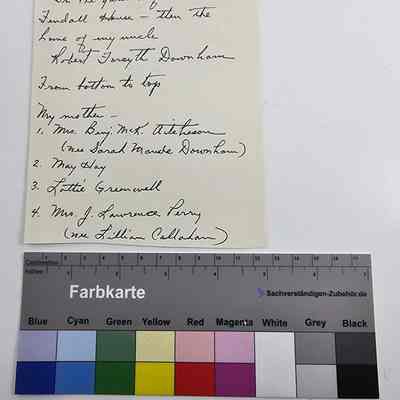 In the garden of
Fendall House - then the
home of my uncle
Robert Forsyth Downham
From bottom to top
My mother -
1. Mrs. Benj. McK. Aitcheson
(nee Sarah Maude Downham)
2. May Hay
3. Lottie Greenwell
4. Mrs. J. Lawrence Perry
(nee Lillian Callahan)
Centimetres
Inches
Farbkarte
Sachverständigen-Zubehör.de
Blue Cyan Green Yellow Red Magenta White Grey Black